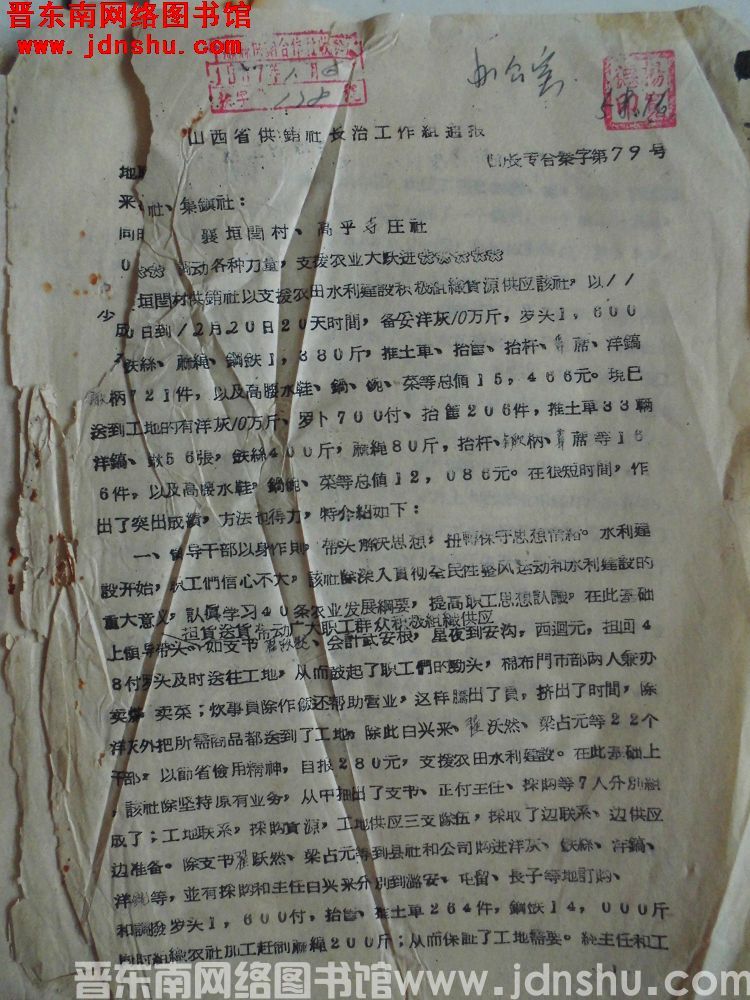 晋东南网络图书馆
www.jdnshu.com
办公室
山西省供銷社长治工作組通报
专合業字第79号
社、集鎮社:
襄垣閏村、高平寺庄社
动各种力量,支援农业大跃进☆☆☆☆☆☆
垣閏村供銷社以支援农田水利建設积极組織貨源供应該社,以11
日到12月20日20天时間,备妥洋灰10万斤,罗头1,600
鉄絲、蔴繩、鋼鉄1,380斤,推土車、抬筐、抬杆、蓆、洋鎬
柄721件,以及高腰水鞋、鍋、碗、菜等总值15,466元。現已
送到工地的有洋灰10万斤、罗卜700付、抬筐206件,推土車33輛
洋鎬、鍬56張,鉄絲400斤,蔴繩80斤,抬杆、鍬柄、蓆等16
6件,以及高腰水鞋,鍋碗、菜等总值12,086元。在很短时間,作
出了突出成績,方法也得力,特介紹如下:
一、領导干部以身作則,帶头解訳思想,扭轉保守思想情緒。水利建
設开始,职工們信心不大,該社除深入貫彻全民性整风运动和水利建設的
重大意义,認真学习40条农业发展綱要,提高职工思想認識,在此基础
担貨送貨帶动广大职工群众积极組織供应
上領导帶头、如支书、会計武安根,星夜到安沟,西迴元,担回4
8付罗头及时送往工地,从而鼓起了职工們的勁头,棉布門市部两人兼办
卖菜;炊事員除作飯还帮助营业,这样騰出了員,挤出了时間,除
洋灰外把所需商品都送到了工地,除此白兴来、翟沃然、梁占元等22个
干部,以節省儉用精神,自报280元,支援农田水利建設。在此基础上
,該社除坚持原有业务,从中抽出了支书、正付主任、採购等7人分別組
成了;工地联系,採购貨源,工地供应三支隊伍,採取了边联系、边供应
边准备。除支书翟跃然、梁占元等到县社和公司购进洋灰、鉄絲、洋鎬、
洋鍬等,並有採购和主任白兴来分別到潞安、屯留、長子等地訂购、
和調撥罗头1,600付,抬筐、推土車264件,鋼鉄14,000斤
同时組織农社加工赶制蔴繩200斤;从而保証了工地需要。經主任和工
晋东南网络图书馆www.jdnshu.com